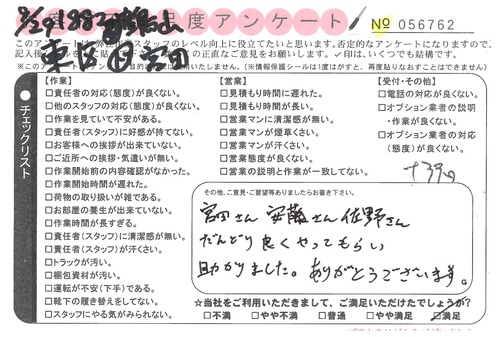 度アンケート
No 056762
このア
スタッフのレベル向上に役立てたいと思います。否定的なアンケートになりますので、
の正直なご意見をお願いします。✓印は、いくつでも結構です。
いたしません。（※情報保護シールは1度はがすと、再度貼りなおすことはできません）
チェックリスト
【作業】
□責任者の対応(態度)が良くない。
□他のスタッフの対応(態度)が良くない。
□作業を見ていて不安がある。
□責任者(スタッフ)に好感が持てない。
□お客様への挨拶が出来ていない。
□ご近所への挨拶・気遣いが無い。
□作業開始前の内容確認がなかった。
□作業開始時間が遅れた。
□荷物の取り扱いが雑である。
□お部屋の養生が出来ていない。
□作業時間が長すぎる。
□責任者(スタッフ)に清潔感が無い。
□責任者(スタッフ)が汗くさい。
□トラックが汚い。
□梱包資材が汚い。
□運転が不安(下手)である。
□靴下の履き替えをしてない。
□スタッフにやる気がみられない。
【営業】
□見積もり時間に遅れた。
□見積もり時間が長い。
□営業マンに清潔感が無い。
□営業マンが煙草くさい。
□営業マンが汗くさい。
□営業態度が良くない。
□営業の説明と作業が一致してない。
【受付・その他】
□電話の対応が良くない。
□オプション業者の説明
・作業が良くない。
□オプション業者の対応
(態度)が良くない。
その他、ご意見・ご要望等ありましたらお書き下さい。
宮田さん 安藤さん 佐野さん
だんどり良くやってもらい
助かりました。ありがとうございます。
☆当社をご利用いただきまして、ご満足いただけたでしょうか？
□不満 □やや不満 □普通 □やや満足 ☑満足